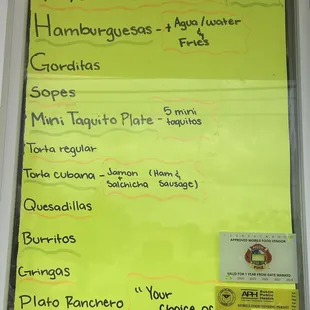 Hamburguesas - + Agua/water
& Fries
Gorditas
Sopes
Mini Taquito Plate - 5 mini
taquitos
Torta regular
Torta cubana - Jamon (Ham &
+ Salchicha Sausage)
Quesadillas
Burritos
Gringas
Plato Ranchero "Your
APPROVED MOBILE FOOD VENDOR
VALID FOR 1 YEAR FROM DATE MARKED
APH Austin
Public
Health